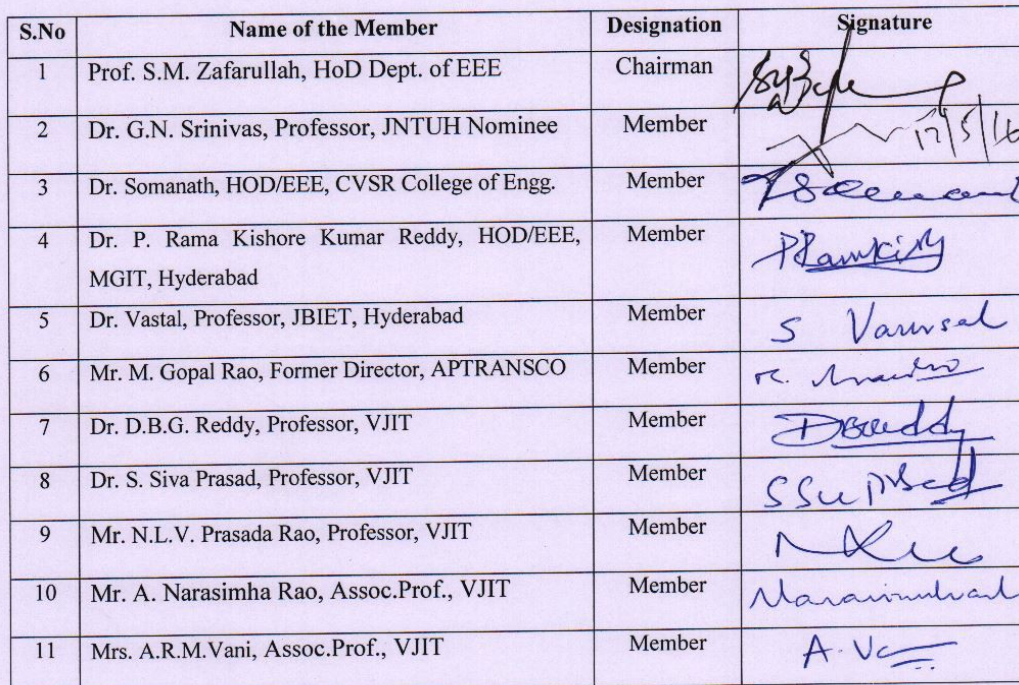 S.No Name of the Member Designation Signature
1 Prof. S.M. Zafarullah, HoD Dept. of EEE Chairman
2 Dr. G.N. Srinivas, Professor, JNTUH Nominee Member 17/5/16
3 Dr. Somanath, HOD/EEE, CVSR College of Engg. Member
4 Dr. P. Rama Kishore Kumar Reddy, HOD/EEE, Member
MGIT, Hyderabad
5 Dr. Vastal, Professor, JBIET, Hyderabad Member S
6 Mr. M. Gopal Rao, Former Director, APTRANSCO Member
7 Dr. D.B.G. Reddy, Professor, VJIT Member
8 Dr. S. Siva Prasad, Professor, VJIT Member
9 Mr. N.L.V. Prasada Rao, Professor, VJIT Member
10 Mr. A. Narasimha Rao, Assoc.Prof., VJIT Member
11 Mrs. A.R.M.Vani, Assoc.Prof., VJIT Member